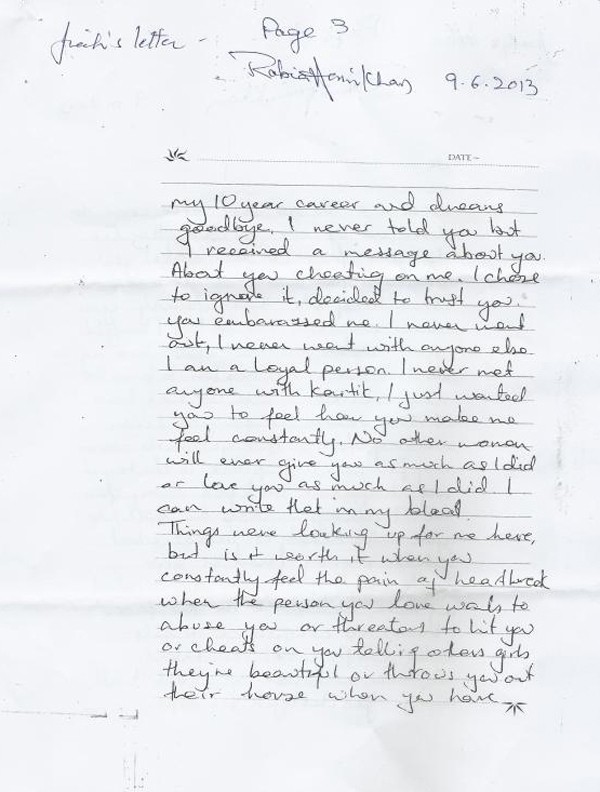 Page 3
letter -
Rabia Khan 9.6.2013
DATE -
my 10 year career and dreams
goodbye. I never told you but
I received a message about you.
About you cheating on me. I chose
to ignore it, decided to trust you.
you embarassed me. I never went
out, I never went with anyone else.
I am a loyal person. I never met
anyone with Kartik, I just wanted
you to feel how you make me
feel constantly. No other woman
will ever give you as much as I did
or love you as much as I did. I
can write that in my blood.
Things were looking up for me here,
but is it worth it when you
constantly feel the pain of heartbreak
when the person you love wants to
abuse you or threatens to hit you
or cheats on you telling others girls
they're beautiful or throws you out
their house when you have